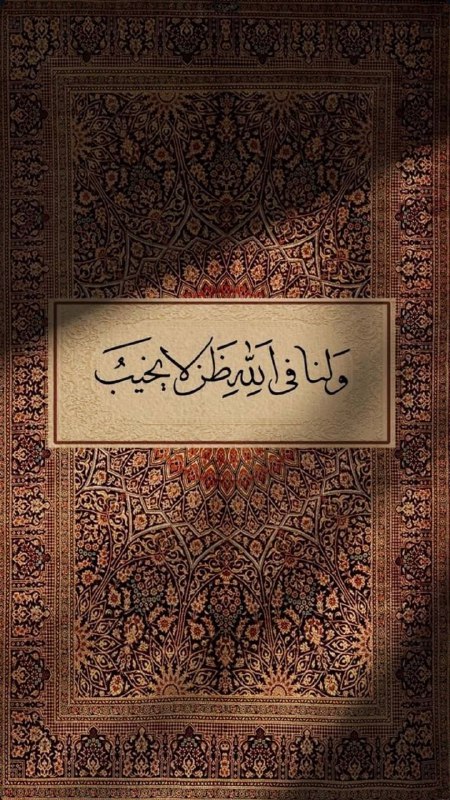 وَلنا في اللهِ ظَن لا يخيبُ